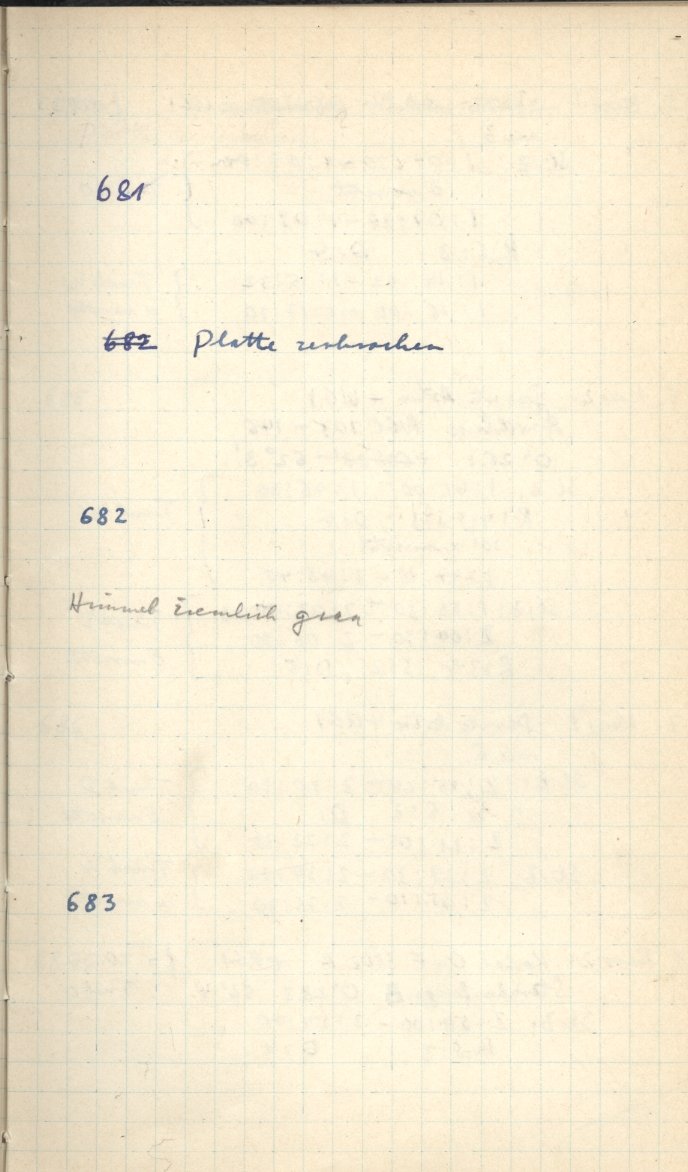 681
682 Platte zerbrochen
682
Himmel ziemlich grau
683